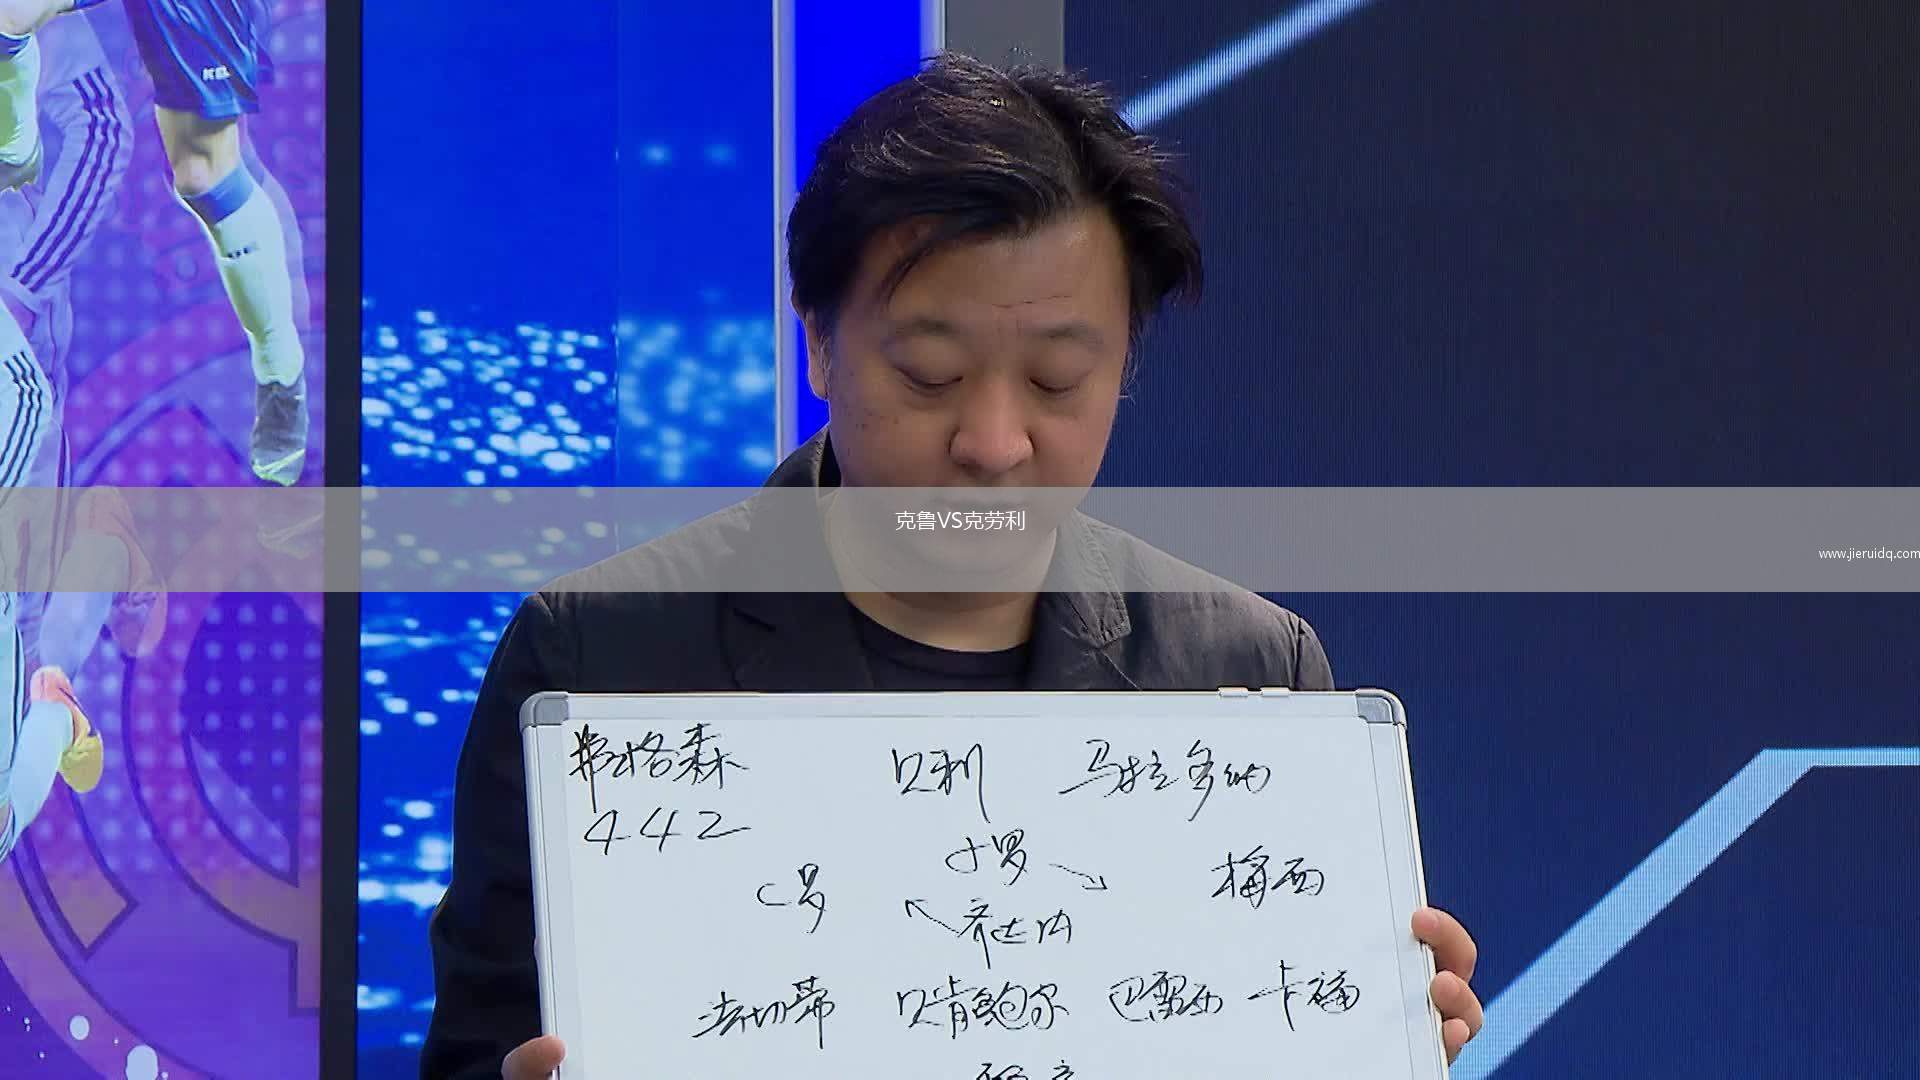 KEL
克鲁VS克劳利
www.jieruidq.com
弗格森 贝利 马拉多纳
442
小罗
C罗 梅西
齐达内
法切蒂 贝肯鲍尔 巴雷西 卡福